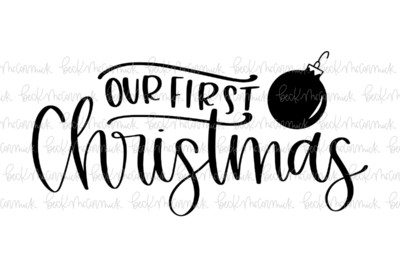 OUR FIRST
Christmas